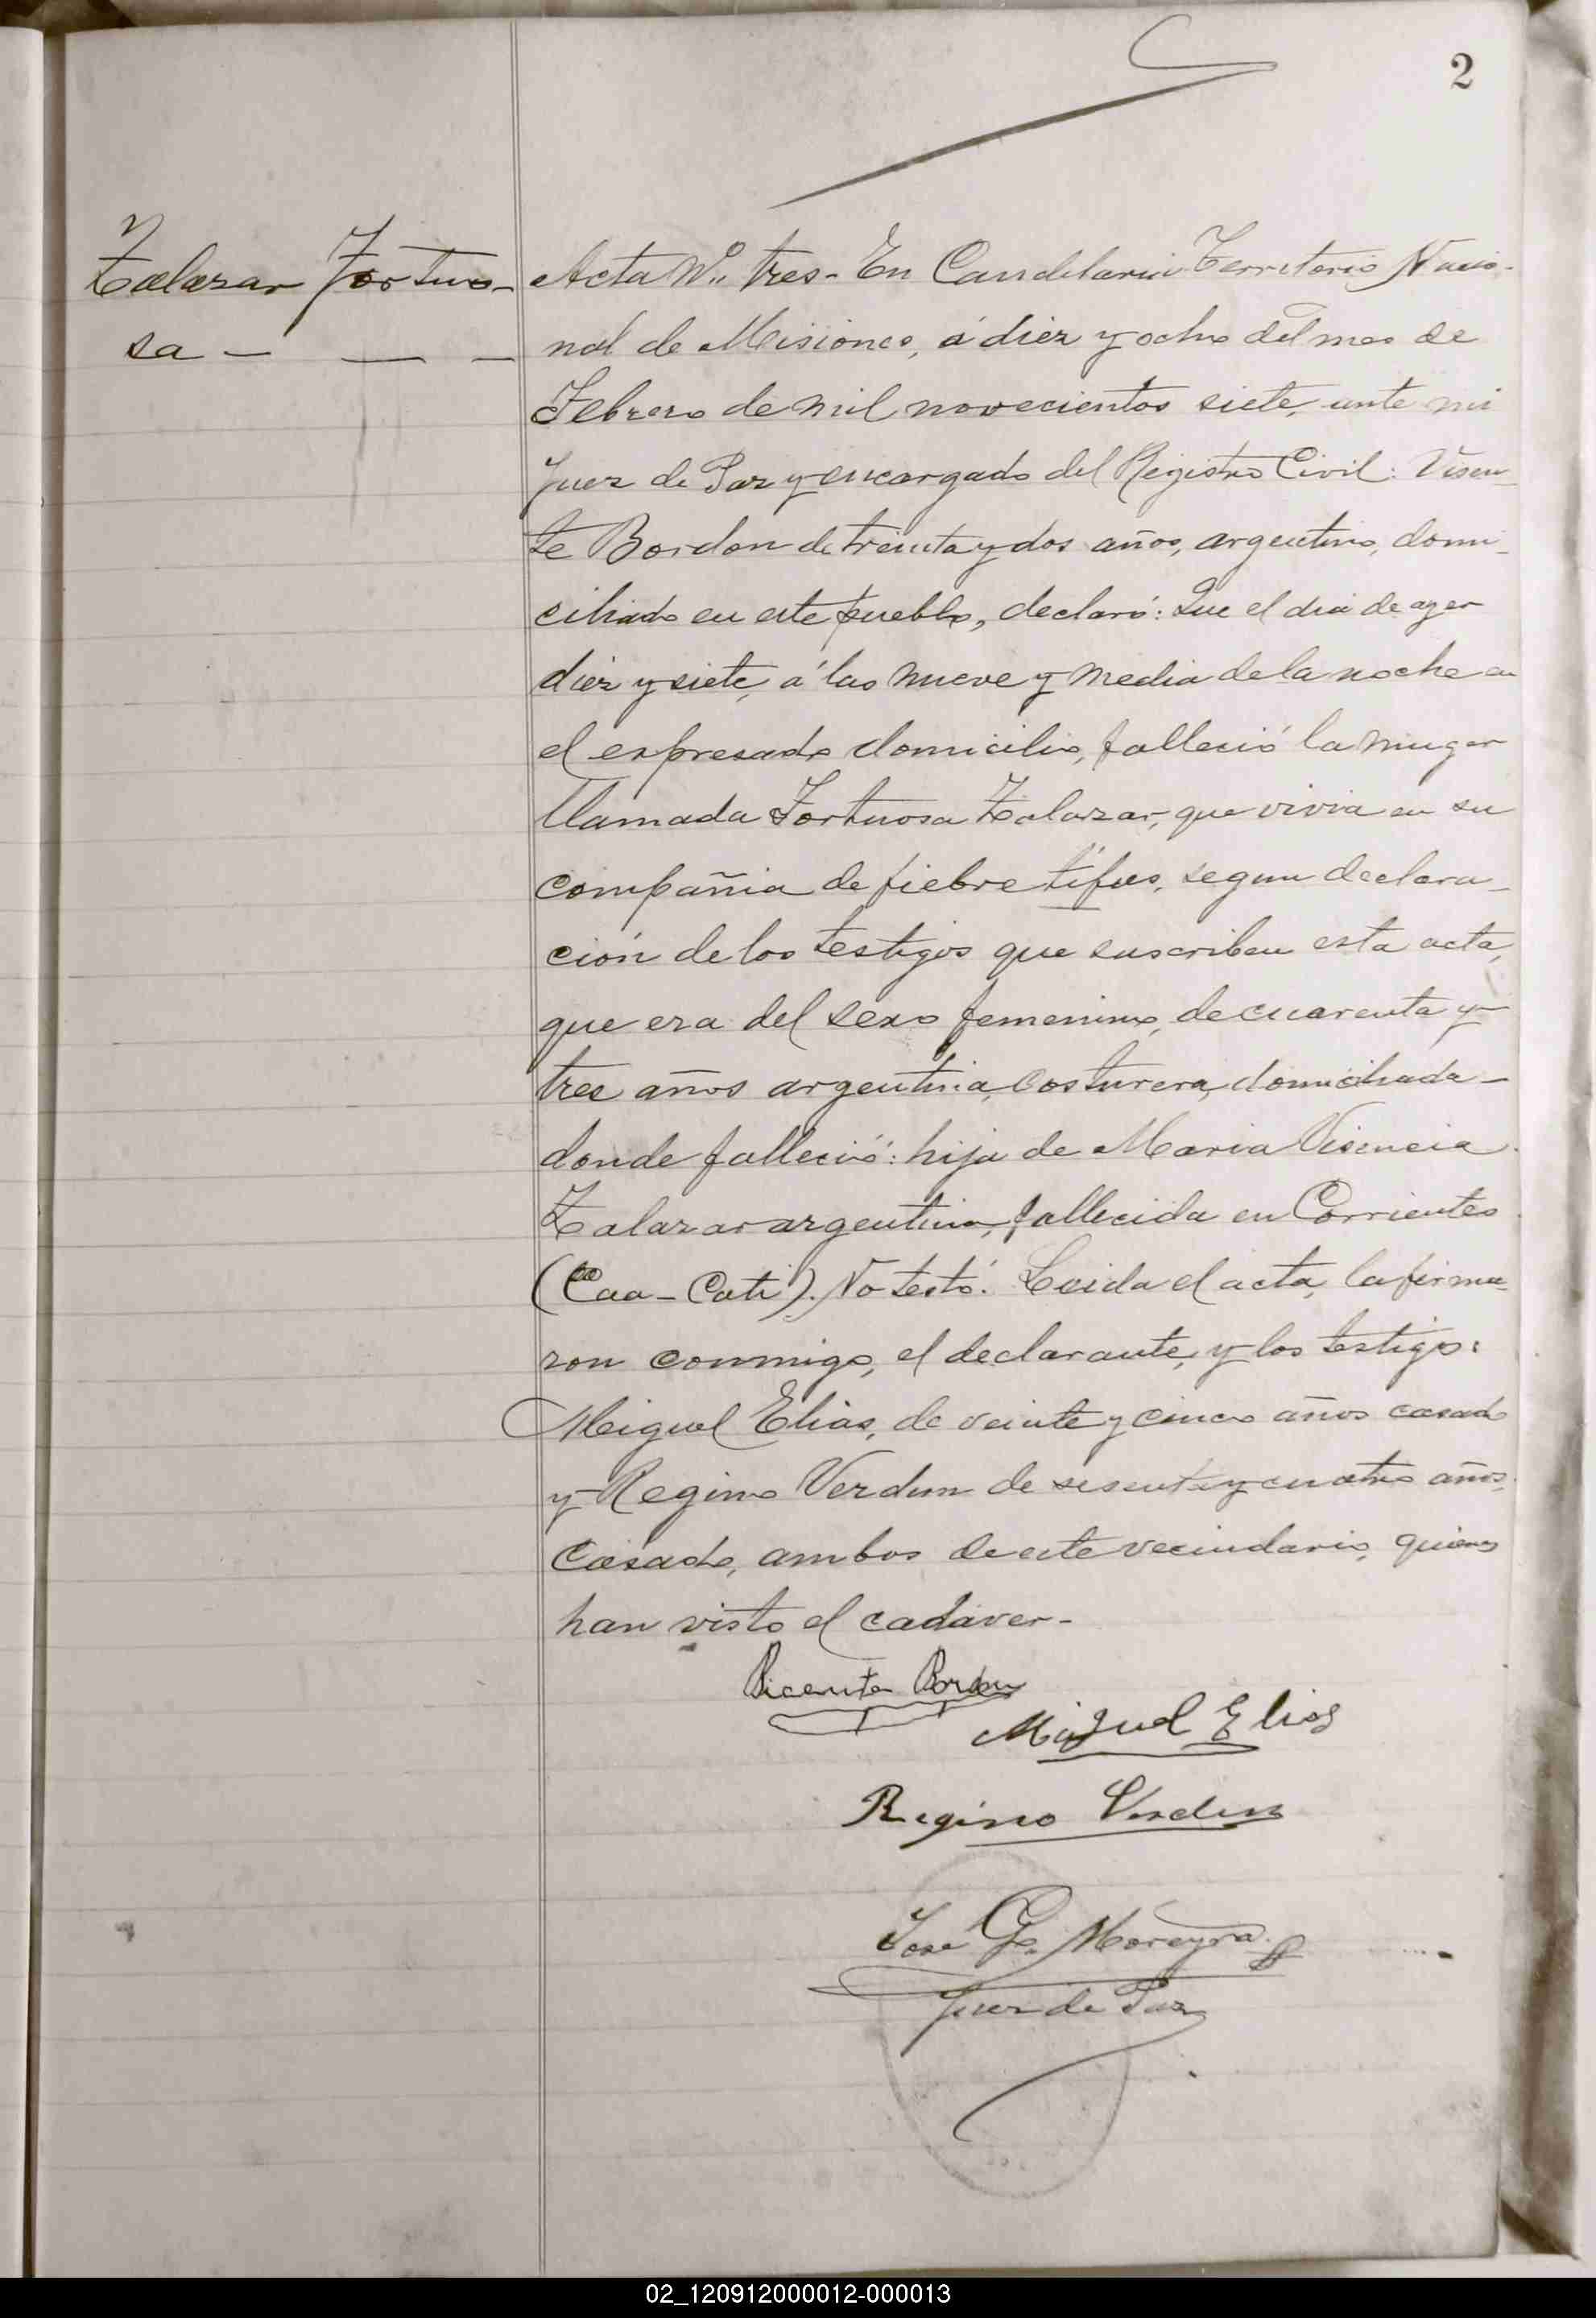 2
Zalazar Fortuo-
sa —
Acta Nº tres- En Candelaria Territorio Nacio-
nal de Misiones, á diez y ocho del mes de
Febrero de mil novecientos siete, ante mi
Juez de Paz y encargado del Registro Civil: Visen-
te Bordon de treinta y dos años, argentino, domi-
ciliado en este pueblo, declaró: Que el dia de ayer
diez y siete, á las nueve y media de la noche en
el espresado domicilio, falleció la muger
llamada Fortuosa Zalazar, que vivia en su
compañia de fiebre tífus, segun declara-
ción de los testigos que suscriben esta acta,
que era del sexo femenino, de cuarenta y
tres años argentina, costurera, domiciliada-
donde falleció: hija de Maria Visencia
Zalazar argentina, fallecida en Corrientes
(Caa-Cati). No testó. Leida el acta, la firma-
ron conmigo, el declarante, y los testigos:
Miguel Elias, de veinte y cinco años casado
y Regino Verdun de sesenta y cuatro años,
casado, ambos de este vecindario, quienes
han visto el cadáver-
Bicente Bordon
Miguel Elias
Regino Verdun
José G. Moreyra
Juez de Paz
02_120912000012-000013